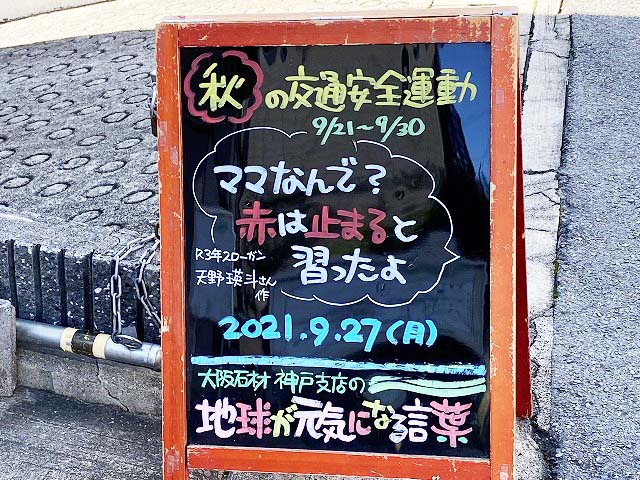 秋の交通安全運動
9/21~9/30
ママなんで?
赤は止まると
習ったよ
R3年スローガン
天野瑛斗さん
作
2021.9.27(月)
大阪石材 神戸支店の
地球が元気になる言葉